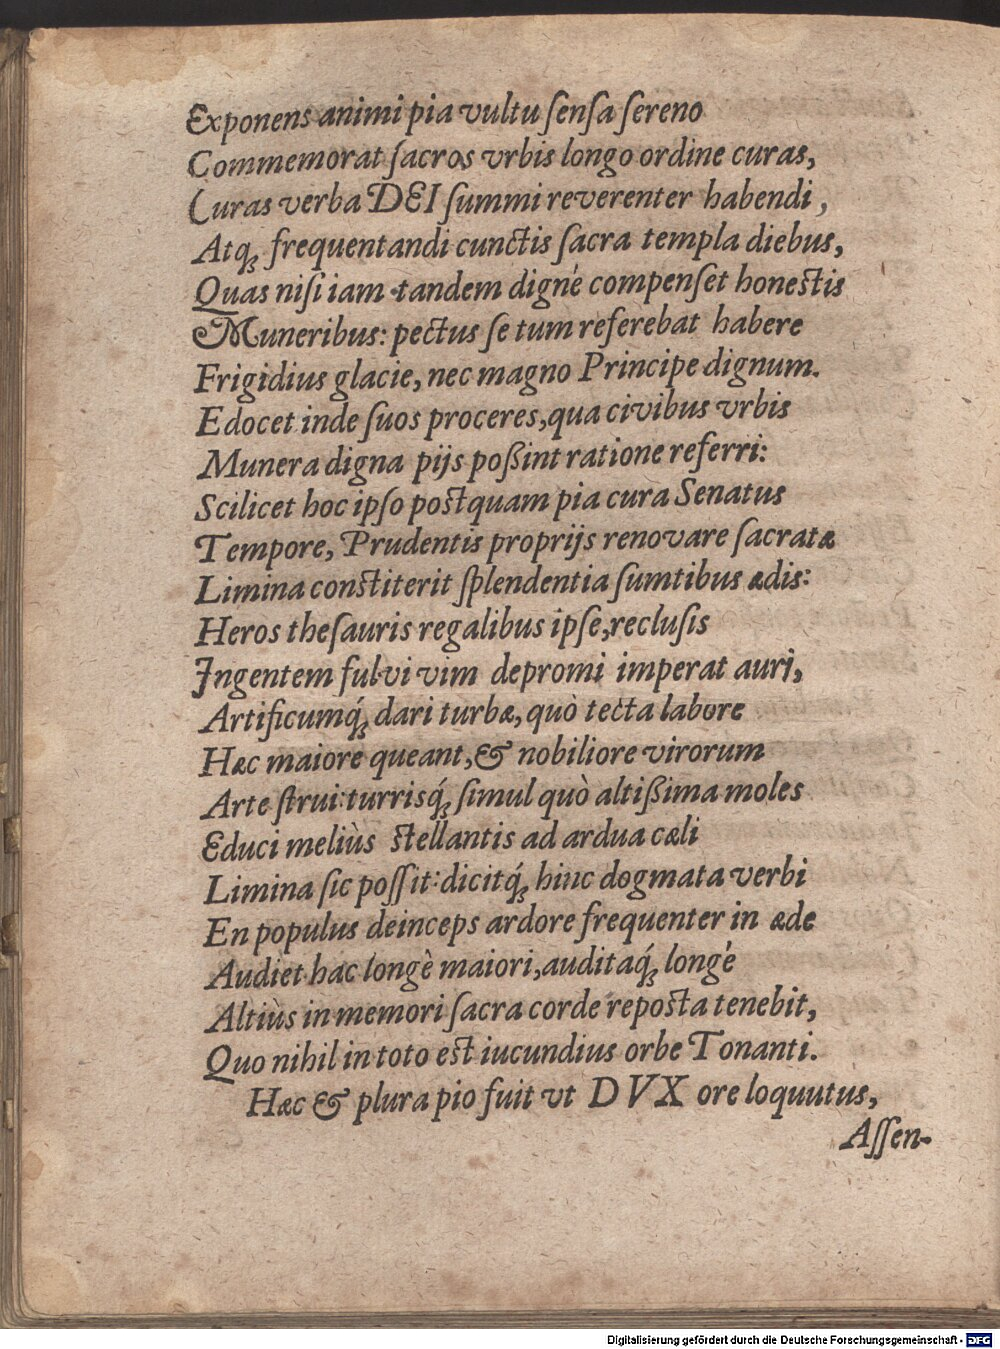 Exponens animi pia vultu ſenſa ſereno
Commemorat ſacros vrbis longo ordine curas,
Curas verba DEI ſummi reverenter habendi,
Atq; frequentandi cunctis ſacra templa diebus,
Quas niſi iam tandem digné compenſet honeſtis
Muneribus: pectus ſe tum referebat habere
Frigidius glacie, nec magno Principe dignum.
Edocet inde ſuos proceres, qua civibus vrbis
Munera digna pijs poßint ratione referri:
Scilicet hoc ipſo poſtquam pia cura Senatus
Tempore, Prudentis proprijs renovare ſacratæ
Limina conſtiterit ſplendentia ſumtibus ædis:
Heros theſauris regalibus ipſe, recluſis
Ingentem fulvi vim depromi imperat auri,
Artificumq́; dari turbæ, quò tecta labore
Hæc maiore queant, & nobiliore virorum
Arte ſtrui: turrisq́; ſimul quò altißima moles
Educi meliùs ſtellantis ad ardua cæli
Limina ſic poſſit: dicitq́; hinc dogmata verbi
En populus deinceps ardore frequenter in æde
Audiet hac longè maiori, auditaq́; longé
Altiùs in memori ſacra corde repoſta tenebit,
Quo nihil in toto eſt iucundius orbe Tonanti.
Hæc & plura pio fuit vt DVX ore loquutus,
Aſſen-
Digitalisierung gefördert durch die Deutsche Forschungsgemeinschaft - DFG